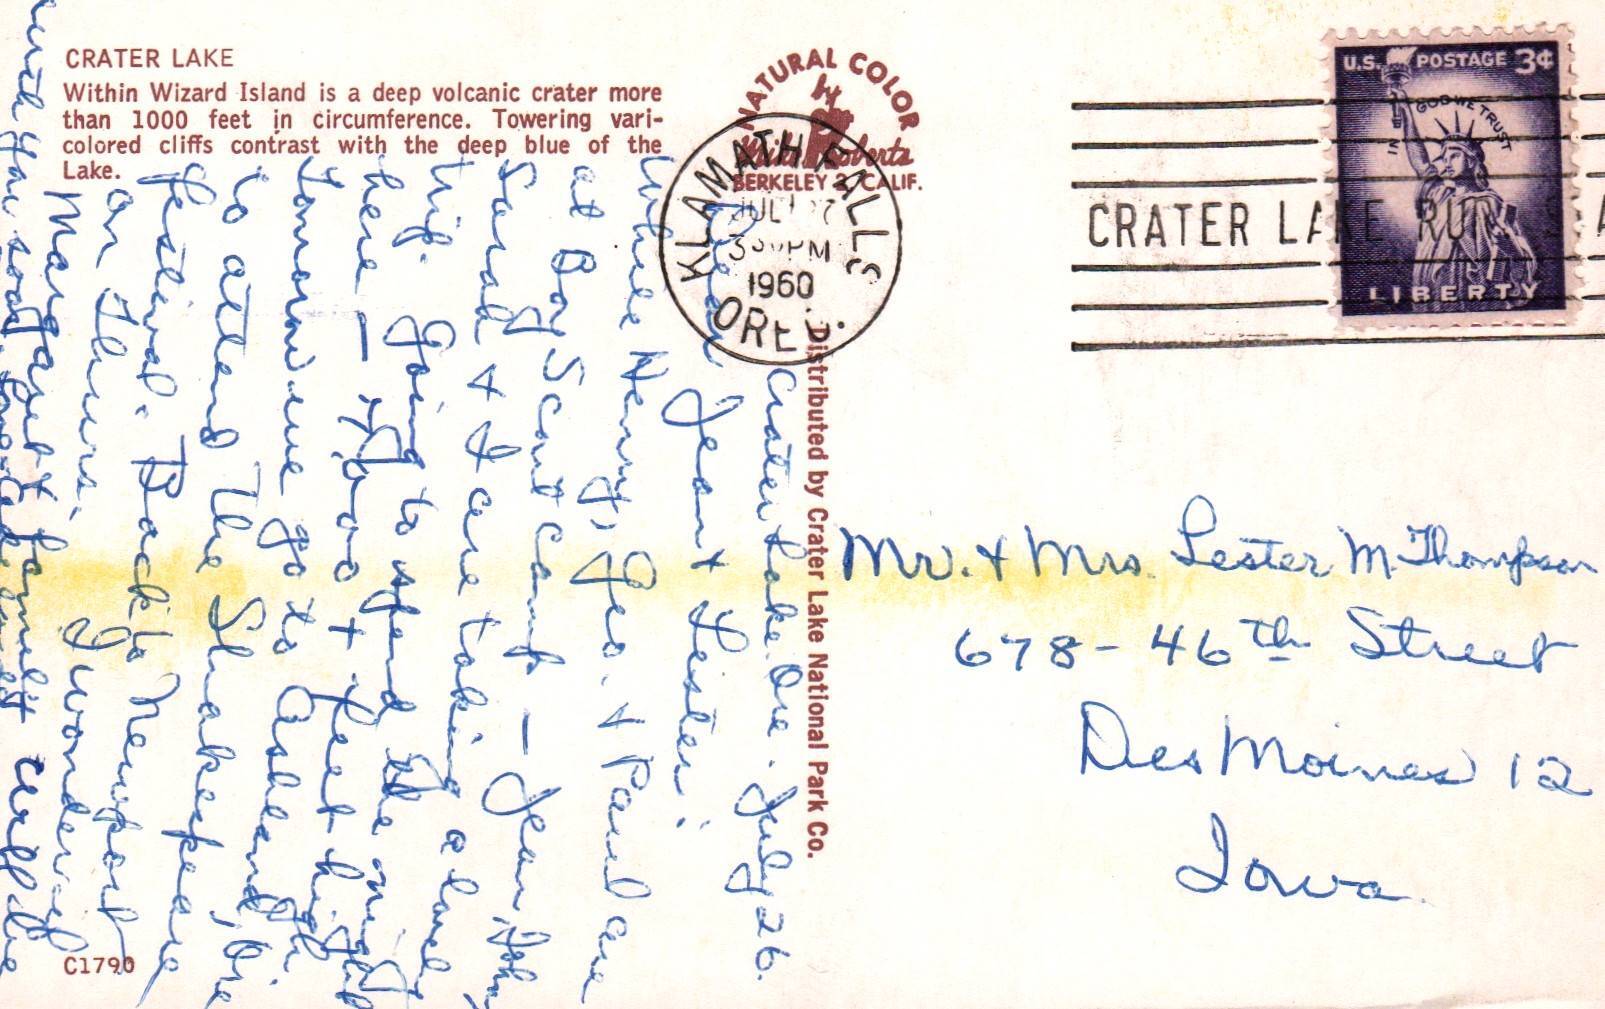 CRATER LAKE
Within Wizard Island is a deep volcanic crater more
than 1000 feet in circumference. Towering vari-
colored cliffs contrast with the deep blue of the
Lake.
NATURAL COLOR
Roberts
BERKELEY 2, CALIF.
KLAMATH FALLS
JUL 27
PM
1960
ORE.
CRATER LAKE
U.S. POSTAGE 3¢
IN GOD WE TRUST
LIBERTY
Crater Lake Ore. July 26.
Dear Jean + Lester:
While Henry, Geo. + Paul are
at Boy Scout camp - Jean, John,
Sarah + I are taking a lovely
trip. Going to spend the night
here - 7,000 + feet high
Tomorrow we go to Ashland, Ore
to attend the Shakespeare
festival. Back to Newport
on Thurs. I wonder if
Margaret + family will be
with you soon.
Distributed by Crater Lake National Park Co.
Mr. + Mrs. Lester M Thompson
678 - 46th Street
Des Moines 12
Iowa.
C1790